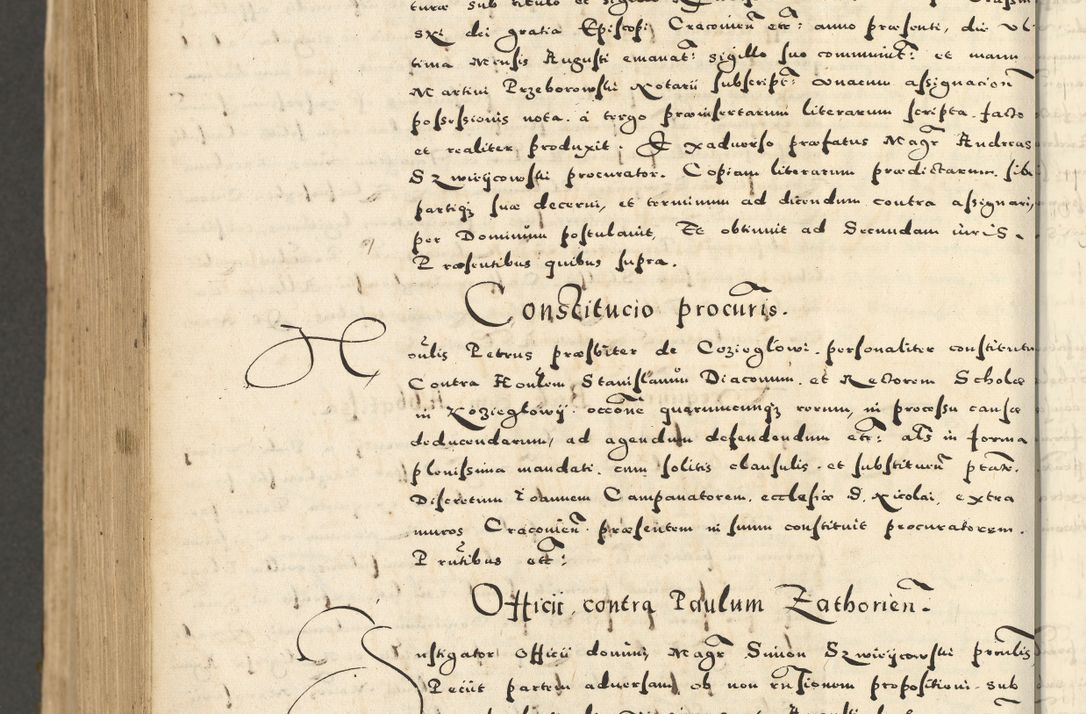 sxi dei gratia Episcopi Cracovien̄ etc: anno præsenti, die Vl
tima Mensis Augusti emanat: sigillo suo communit: et manu
Martini Przeborowski Notarii subscript: Unacum assignacion
possessionis nota. à tergo præinsertarum literarum scripta. facto
et realiter produxit. Et Exaduerso præfatus Magr Andreas
Szwieijcowski procurator. Copiam literarum prædictarum. sibi
partiqȝ suæ decerni, et terminum ad dicendum contra assignari,
per Dominum postulauit, Et obtinuit ad Secundam iuris.
Præsentibus quibus supra.
Constitucio procuris.
Noulis Petrus præsbiter de Cozieglowi. personaliter constitutu
Contra Houlem Stanislaum Diaconum. et Rectorem Scholæ
in Kozieglowij. occone quarumcunqȝ rerum, in processu causæ
deducendarum, ad agendum defendendum etc: als in forma
plenissima mandati. cum solitis clausulis. et substituen ptate.
Discretum Ioannem Campanatorem, ecclesiæ S. Nicolai, extra
muros Cracovien. præsentem in suum constituit procuratorem.
Pruntibus etc:
Officii contra Paulum Zathorien.
Instigator Officii domini, Magr Simon Szwieijcowski procuris
Peciit partem aduersam ob non propositioni. sub